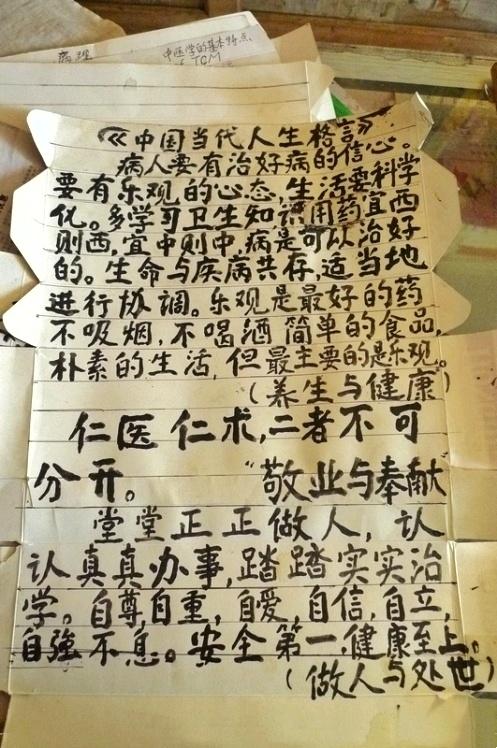 病理
中医学的基本特点
TCM
《中国当代人生格言》
病人要有治好病的信心。
要有乐观的心态,生活要科学
化。多学习卫生知识用药宜西
则西,宜中则中,病是可以治好
的。生命与疾病共存,适当地
进行协调。乐观是最好的药
不吸烟,不喝酒简单的食品,
朴素的生活,但最主要的是乐观。
(养生与健康)
仁医仁术,二者不可
分开。 “敬业与奉献
堂堂正正做人,认
认真真办事,踏踏实实治
学。自尊,自重,自爱,自信,自立,
自强不息。安全第一,健康至上。
(做人与处世)